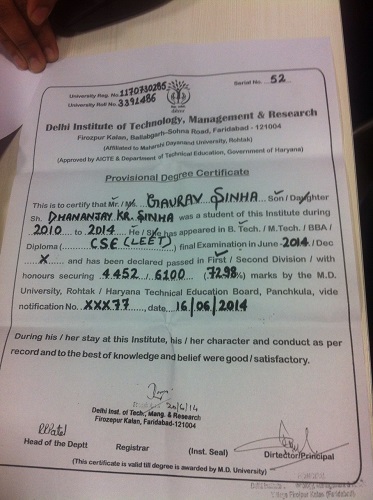 University Reg. No. 1170730285
University Roll No. 3391486
Serial No. 52
Delhi Institute of Technology, Management & Research
Firozpur Kalan, Ballabgarh-Sohna Road, Faridabad - 121004
(Affiliated to Maharshi Dayanand University, Rohtak)
(Approved by AICTE & Department of Technical Education, Government of Haryana)
Provisional Degree Certificate
This is to certify that Mr. / Ms. GAURAV SINHA Son / Daughter
Sh. DHANANJAY KR. SINHA was a student of this Institute during
2010 to 2014 He / She has appeared in B. Tech. / M.Tech. / BBA /
Diploma ( CSE (LEET) ) final Examination in June 2014 / Dec
X and has been declared passed in First / Second Division / with
honours securing 4452 / 6100 (72.98%) marks by the M.D.
University, Rohtak / Haryana Technical Education Board, Panchkula, vide
notification No. XXX77, date 16/06/2014
During his / her stay at this Institute, his / her character and conduct as per
record and to the best of knowledge and belief were good / satisfactory.
20/6/14
Delhi Inst. of Tech., Mang. & Research
Firozepur Kalan, Faridabad-121004
Head of the Deptt
Registrar
(Inst. Seal)
Dirtector/Principal
(This certificate is valid till degree is awarded by M.D. University)